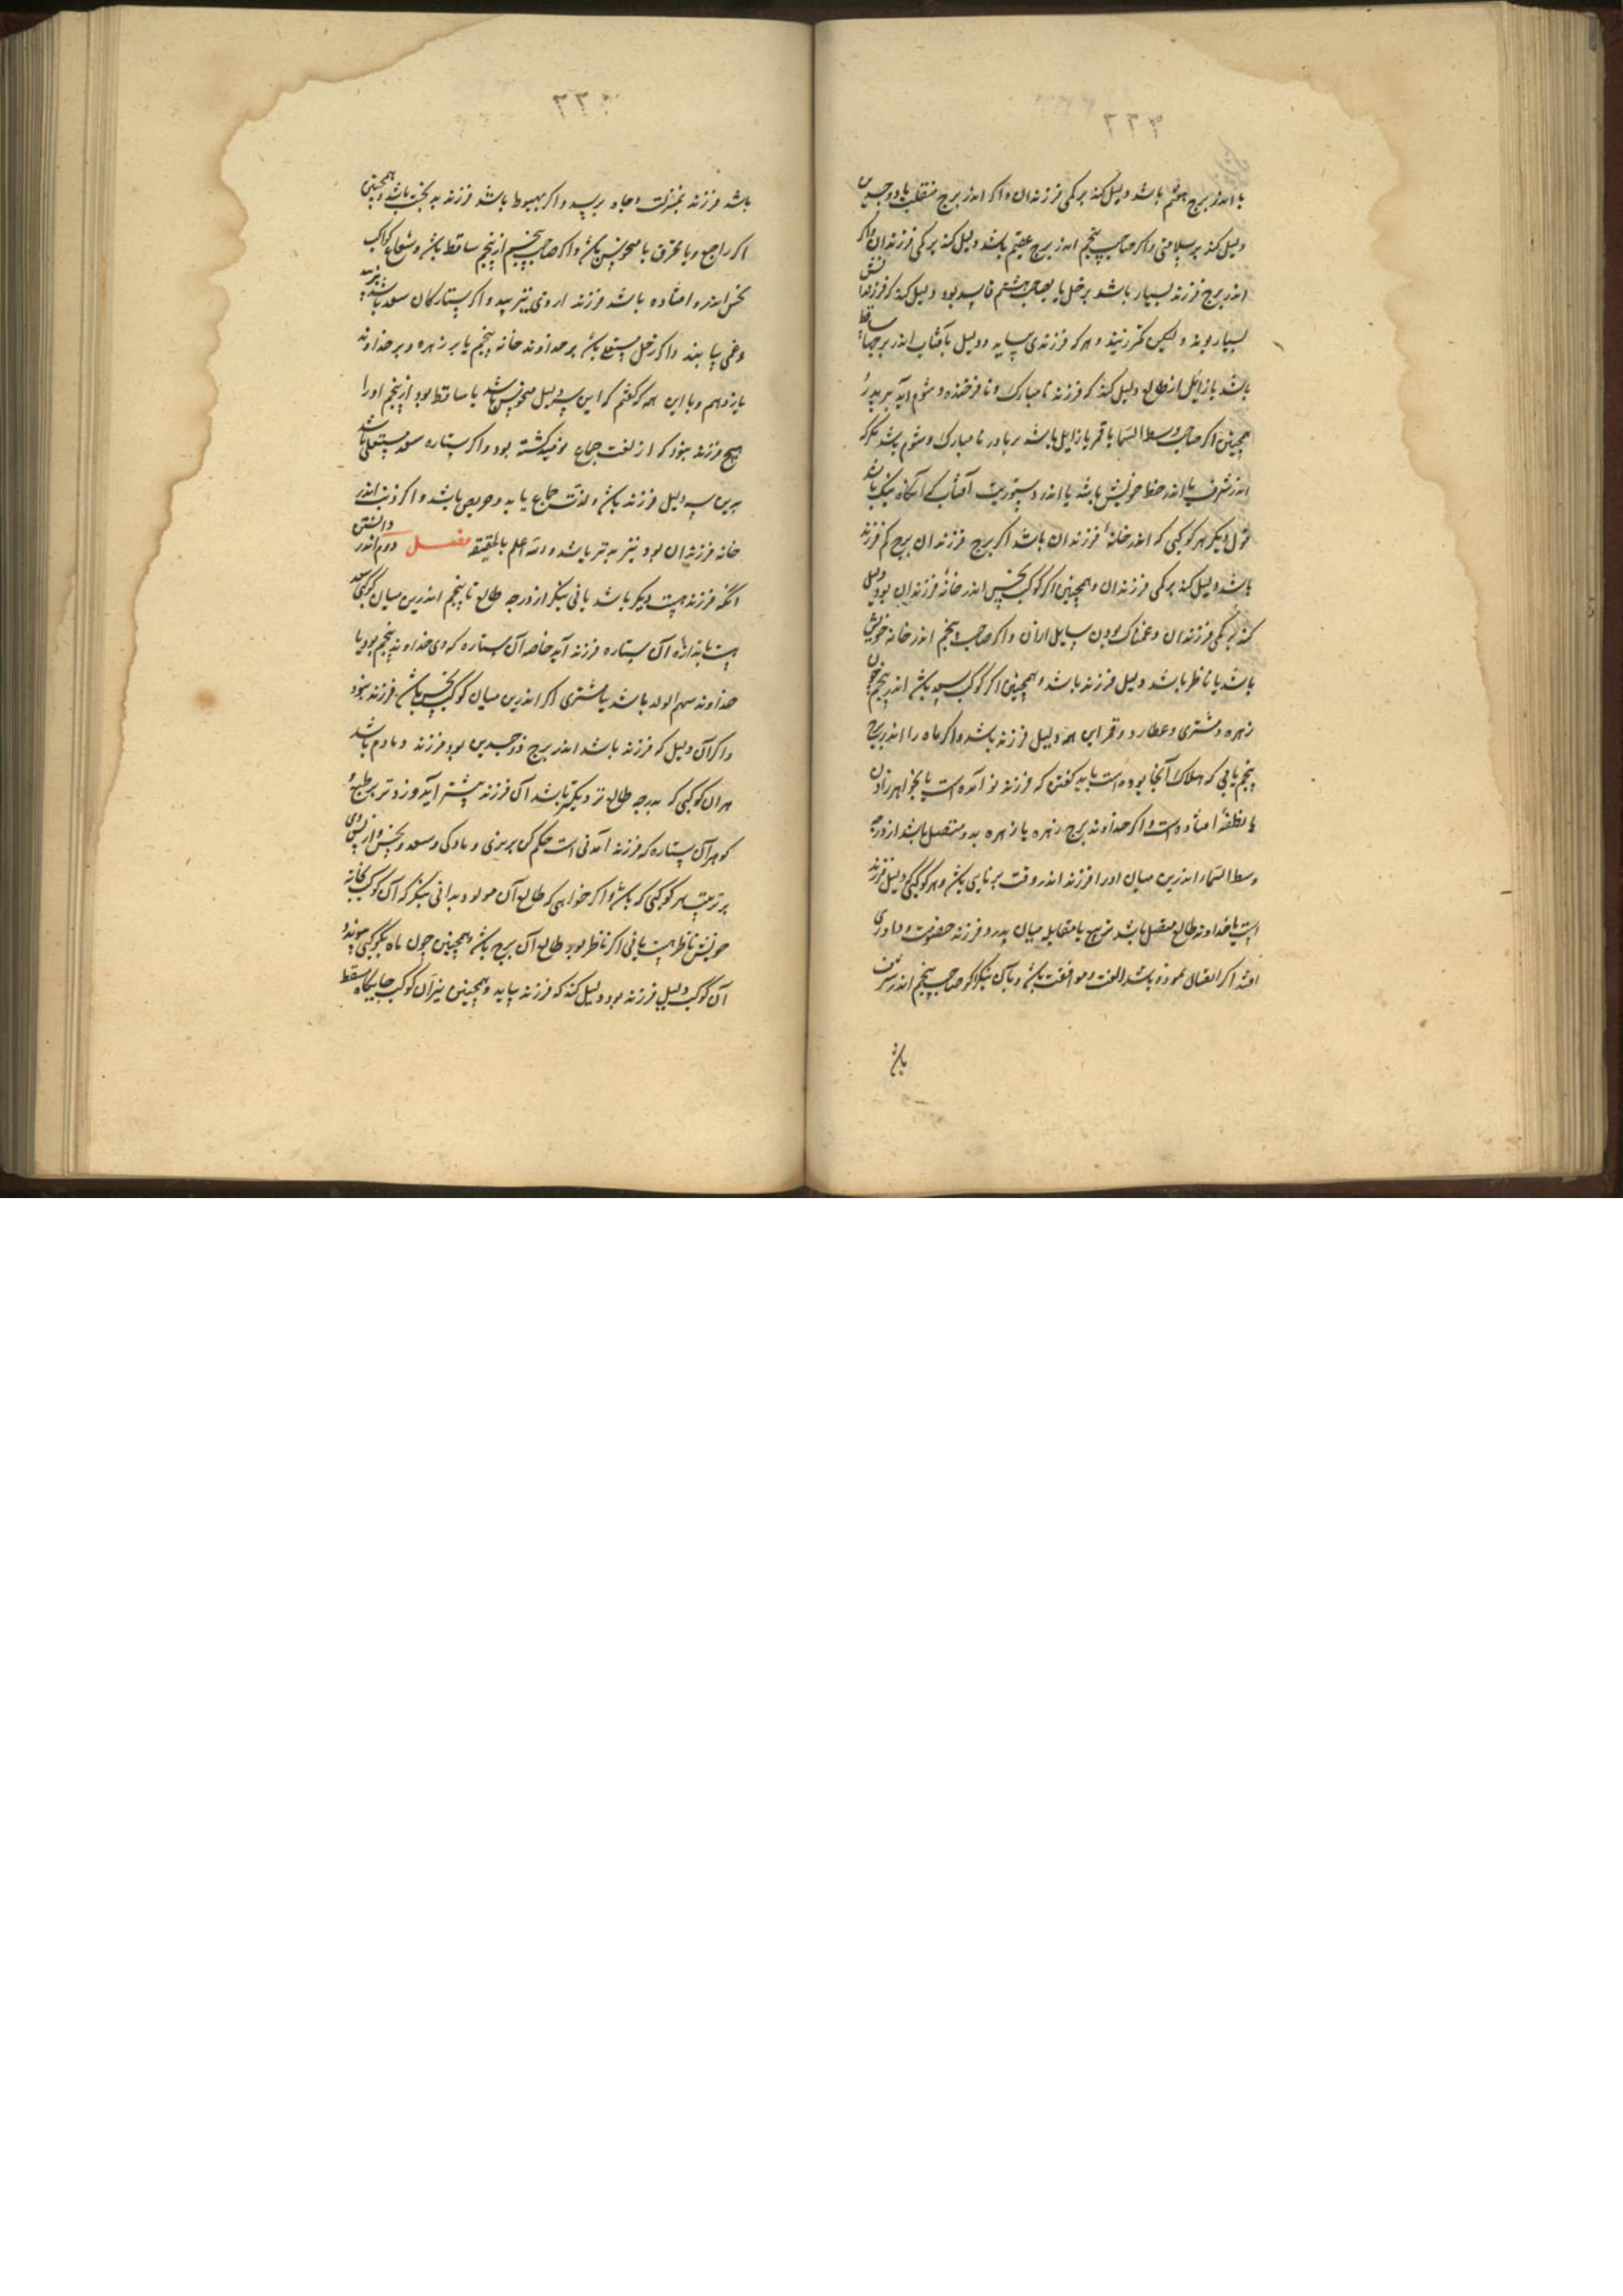 ۲۲۳
یا اندر برج هفتم باشد دلیل کند بر کمی فرزندان و اگر اندر برج منقلب یا ذوجسدین
دلیل کند بر سلامتی و اگر صاحب پنجم اندر برج عقیم باشد دلیل کند بر کمی فرزندان و اگر
اندر برج فرزند بسیار باشد بزحل یا بصاحب هشتم فاسد بود دلیل کند که فرزندانش
بسیار بوند ولیکن کمتر زیند و هر که فرزندی بیاید و دلیل یا آفتاب اندر برجهاء ساقط
باشد یا زائل از طالع دلیل کند که فرزند نامبارک و نافرخنده و شوم آید بر پدر و
همچنین اگر صاحب وسط السما یا قمر یا زایل باشد بر مادر نامبارک و شوم باشد مگر که
اندر شرف یا اندر حظ خویش باشد یا اندر دستوریت آفتاب که آنگاه نیک باشد
قول دیگر هر کوکبی که اندر خانهٔ فرزندان باشد اگر برج فرزندان برج کم فرزند
باشد دلیل کند بر کمی فرزندان و همچنین اگر کوکب نحس اندر خانهٔ فرزندان بود دلیل
کند بر کمی فرزندان و غمناک بودن سایل از آن و اگر صاحب پنجم اندر خانه خویش
باشد یا ناظر باشد دلیل فرزند باشد و همچنین اگر کوکب سعد باشد اندر پنجم چون
زهره و مشتری و عطارد و قمر این همه دلیل فرزند باشد و اگر ماه را اندر برج
پنجم یابی که هیلاک آنجا بوده است باید گفتن که فرزند نو آمده است یا بخواهد زادن
یا نطفه افتاده است و اگر خداوند برج زهره یا زهره بدو متصل باشد از درجهٔ
وسط السماء اندرین میان او را فرزند اندر وقت برنایی باشد و هر کوکبی که دلیل فرزند
است با خداوند طالع متصل باشد تربیع یا مقابله میان پدر و فرزند خصومت و داوری
افتد اگر اتصال نمودة باشد الفت و موافقت باشد و بآن بنگر اگر صاحب پنجم اندر شرف
باشد
۲۲
باشد فرزند بمنزلت و جاه برسد و اگر بهبوط باشد فرزند بدبخت باشد و همچنین
اگر راجع و یا محترق یا منحوس باشد و اگر صاحب پنجم از پنجم ساقط باشد و شعاع کواکب
نحس اندرو افتاده باشد فرزند از وی بترسد و اگر ستارگان سعد باشد
و غمی یابند و اگر زحل مستعلی باشد بر خداوند خانه پنجم یا بر زهره و بر خداوند
یازدهم و با این همه که گفتم که این سه دلیل منحوس باشد یا ساقط بود از پنجم او را
هیچ فرزند نبود که از لفت جماع نومید گشته بود و اگر ستاره سعد مستعلی باشد
برین سه دلیل فرزند باشد و لذّت جماع یابد و حریص باشد و اگر ذنب اندر
خانه فرزندان بود نیز بتر باشد والله اعلم بالحقیقه فصل دوم اندر دانستن
آنکه فرزند هست دیگر باشد یا نی بنگر از درجه طالع تا پنجم اندرین میان کوکبی سعد
هست باندازهٔ آن ستاره فرزند آید خاصه آن ستاره که وی خداوند پنجم بود یا
خداوند سهم الولد باشد یا مشتری اگر اندرین میان کوکب نحس باشد فرزند نبود
و اگر آن دلیل که فرزند باشد اندر برج ذوجسدین بود فرزند دمادم باشد
هر آن کوکبی که بدرجه طالع نزدیکتر باشد آن فرزند پیشتر آید و زودتر بر طبع و
گوهر آن ستاره که فرزند آمدنی است حکم کن بر نری و مادگی و سعد و نحس
بر ترتیب هر کوکبی که باشد و اگر خواهی که طالع آن مولود بدانی بنگر که آن کوکب بخانه
خویش ناظر هست یا نی اگر ناظر بود طالع آن برج باشد و همچنین چون ماه بکوکبی پیوندد
آن کوکب دلیل فرزند بود دلیل کند که فرزند بیاید و همچنین نیز آن کوکب جایگاه سقط